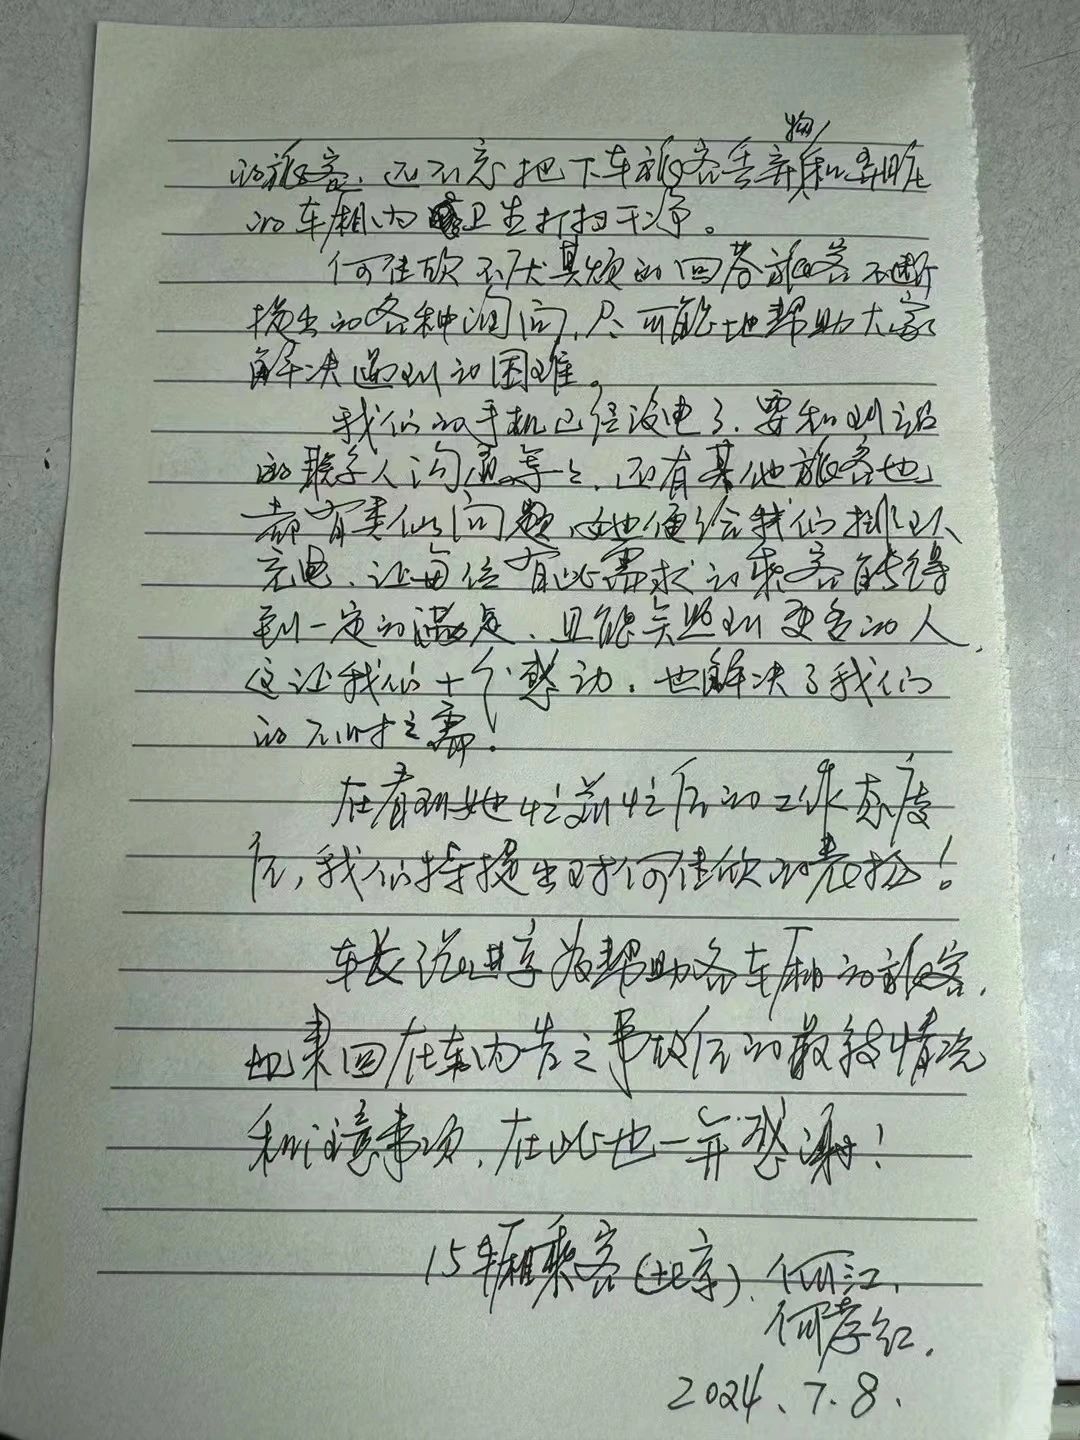 的旅客，还不忘把下车旅客丢弃物和弄脏
的车厢内卫生打扫干净。
何佳欣不厌其烦的回答旅客不断
提出的各种询问，尽可能地帮助大家
解决遇到的困难。
我们的手机已经没电了，要和到站
的联系人沟通等等，还有其他旅客也
都有类似问题，她便给我们排队
充电，让每位有此需求的乘客能够得
到一定的满足，且能兼顾到更多的人，
这让我们十分感动，也解决了我们
的不时之需！
在看到她忙前忙后的工作态度
后，我们特提出对何佳欣的表扬！
车长 进京为帮助各车厢的旅客，
来回在车内告之事故后的最新情况
和注意事项，在此也一并感谢！
15车厢乘客（北京）何江，
何孝红，
2024、7、8、